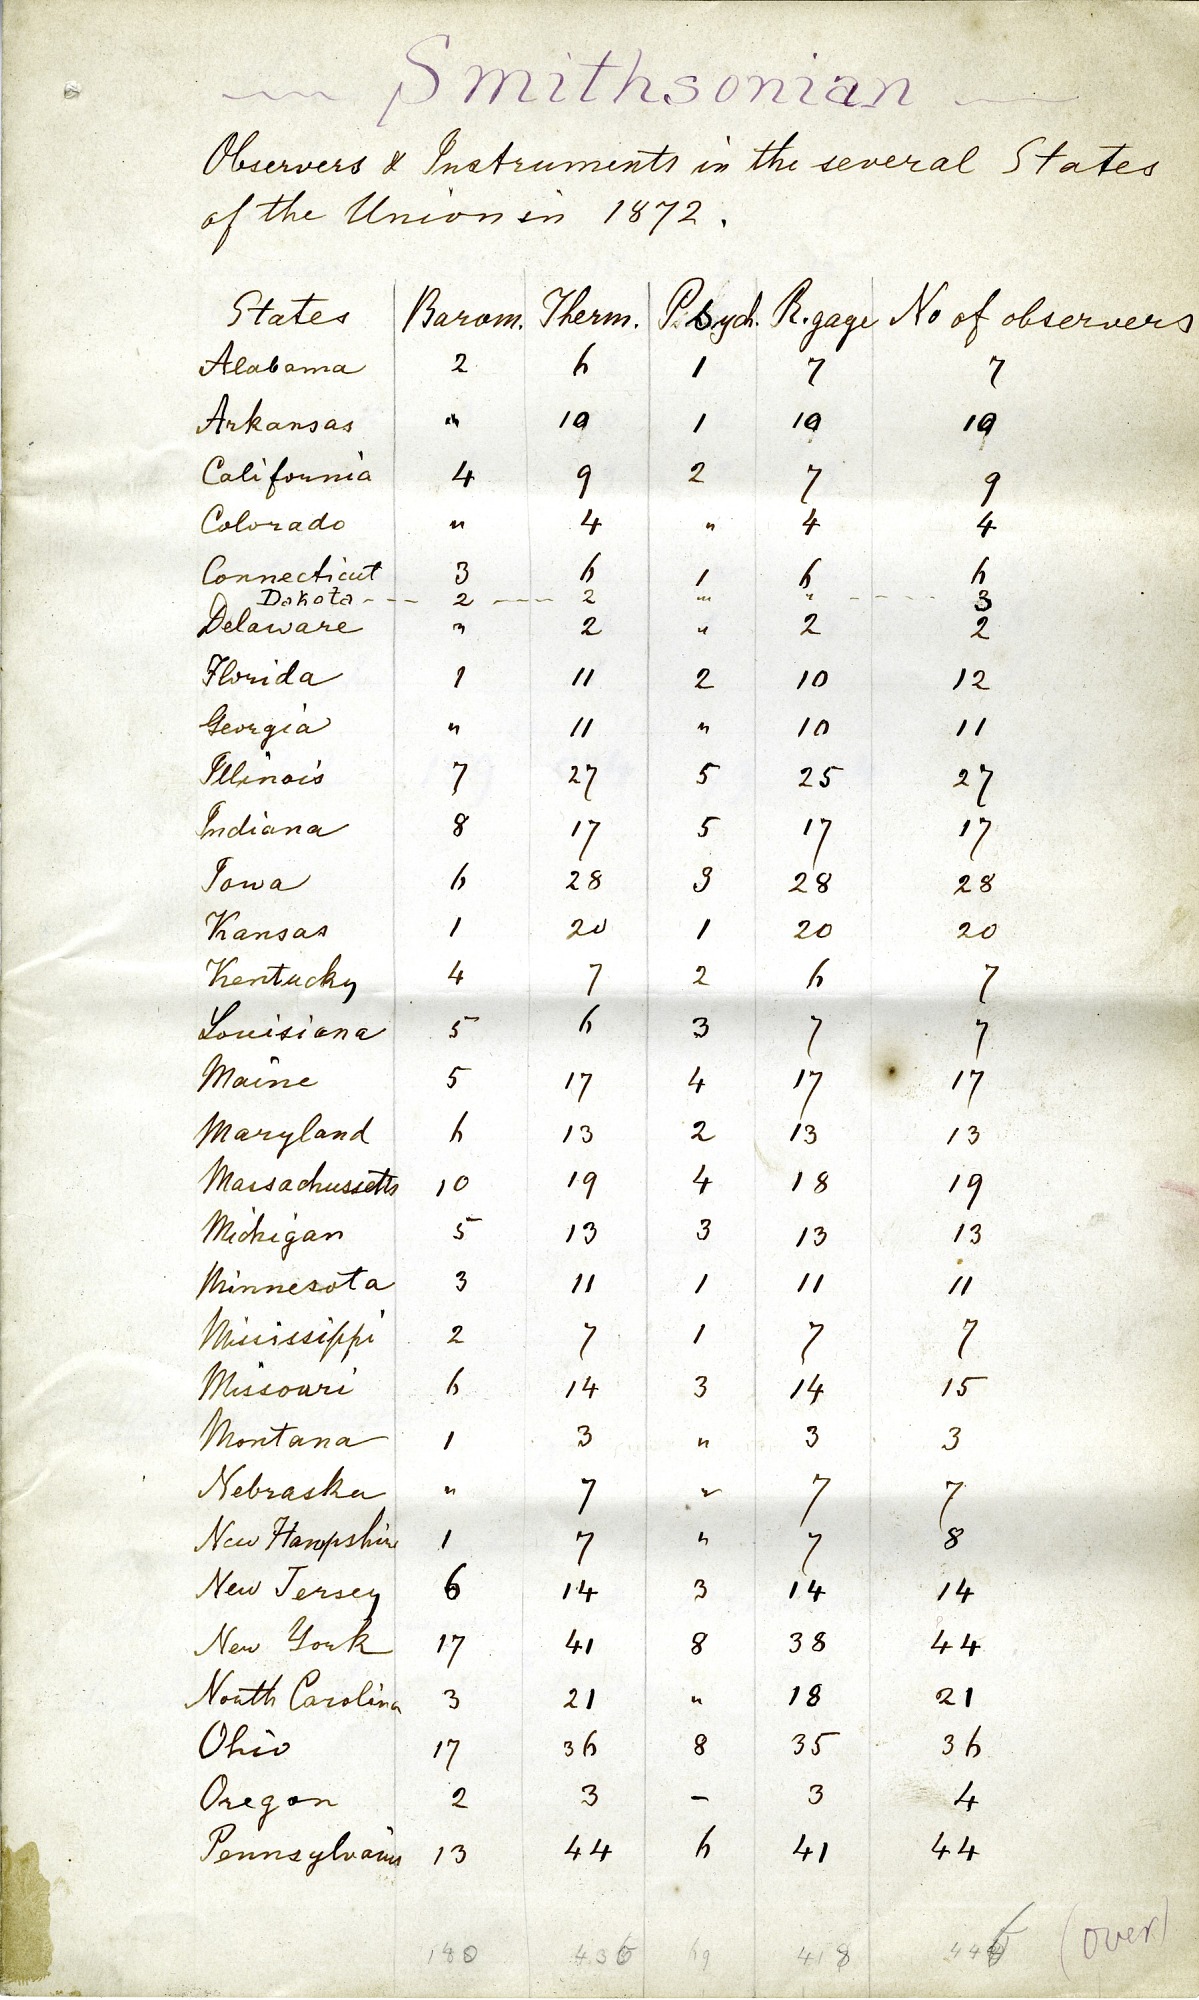 Smithsonian
Observers & Instruments in the several States
of the Union in 1872.
States Barom. Therm. Psych. R. gage No of observers
Alabama 2 6 1 7 7
Arkansas " 19 1 19 19
California 4 9 2 7 9
Colorado " 4 " 4 4
Connecticut 3 6 1 6 6
Dakota - - - 2 - - - 2 " " - - - - 3
Delaware " 2 " 2 2
Florida 1 11 2 10 12
Georgia " 11 " 10 11
Illinois 7 27 5 25 27
Indiana 8 17 5 17 17
Iowa 6 28 3 28 28
Kansas 1 20 1 20 20
Kentucky 4 7 2 6 7
Louisiana 5 6 3 7 7
Maine 5 17 4 17 17
Maryland 6 13 2 13 13
Massachussetts 10 19 4 18 19
Michigan 5 13 3 13 13
Minnesota 3 11 1 11 11
Mississippi 2 7 1 7 7
Missouri 6 14 3 14 15
Montana 1 3 " 3 3
Nebraska " 7 " 7 7
New Hampshire 1 7 " 7 8
New Jersey 6 14 3 14 14
New York 17 41 8 38 44
North Carolina 3 21 " 18 21
Ohio 17 36 8 35 36
Oregon 2 3 – 3 4
Pennsylvania 13 44 6 41 44
69 418 (over)